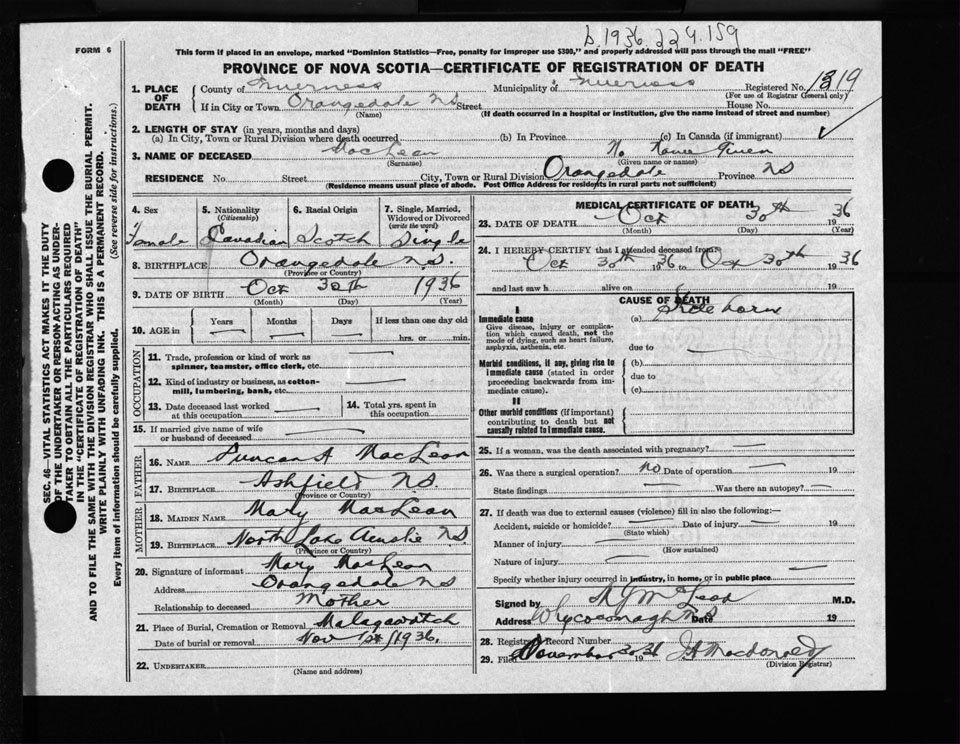 D.1936.224.159
FORM 6
This form if placed in an envelope, marked "Dominion Statistics—Free, penalty for improper use $300," and properly addressed will pass through the mail "FREE"
PROVINCE OF NOVA SCOTIA—CERTIFICATE OF REGISTRATION OF DEATH
1. PLACE OF DEATH County of Inverness Municipality of Inverness Registered No. 1319
(For use of Registrar General only)
If in City or Town Orangedale NS Street House No.
(Name) (If death occurred in a hospital or institution, give the name instead of street and number)
2. LENGTH OF STAY (in years, months and days)
(a) In City, Town or Rural Division where death occurred (b) In Province (c) In Canada (if immigrant)
3. NAME OF DECEASED MacLean No Name Given
(Surname) (Given name or names)
RESIDENCE No. Street City, Town or Rural Division Orangedale Province NS
(Residence means usual place of abode. Post Office Address for residents in rural parts not sufficient)
4. Sex 5. Nationality (Citizenship) 6. Racial Origin 7. Single, Married, Widowed or Divorced (write the word)
Female Canadian Scotch Single
8. BIRTHPLACE Orangedale N.S.
(Province or Country)
9. DATE OF BIRTH Oct 30th 1936
(Month) (Day) (Year)
10. AGE in Years Months Days If less than one day old
hrs. or min.
OCCUPATION
11. Trade, profession or kind of work as spinner, teamster, office clerk, etc.
12. Kind of industry or business, as cotton-mill, lumbering, bank, etc.
13. Date deceased last worked at this occupation
14. Total yrs. spent in this occupation
15. If married give name of wife or husband of deceased
FATHER
16. NAME Duncan A MacLean
17. BIRTHPLACE Ashfield N.S.
(Province or Country)
MOTHER
18. MAIDEN NAME Mary MacLean
19. BIRTHPLACE North Lake Ainslie N.S
(Province or Country)
20. Signature of informant Mary MacLean
Address Orangedale NS
Relationship to deceased Mother
21. Place of Burial, Cremation or Removal Malagawatch
Date of burial or removal Nov 1st 1936.
22. UNDERTAKER
(Name and address)
MEDICAL CERTIFICATE OF DEATH
23. DATE OF DEATH Oct 30th 36
(Month) (Day) (Year)
24. I HEREBY CERTIFY that I attended deceased from
Oct 30th 1936 to Oct 30th 1936
and last saw h alive on 19
CAUSE OF DEATH
I
Immediate cause (a)
Give disease, injury or complication which caused death, not the mode of dying, such as heart failure, asphyxia, asthenia, etc.
due to
Morbid conditions, if any, giving rise to immediate cause (stated in order proceeding backwards from immediate cause).
(b)
due to
(c)
II
Other morbid conditions (if important) contributing to death but not causally related to immediate cause.
25. If a woman, was the death associated with pregnancy?
26. Was there a surgical operation? No Date of operation 19
State findings Was there an autopsy?
27. If death was due to external causes (violence) fill in also the following:—
Accident, suicide or homicide? Date of injury 19
(State which)
Manner of injury
(How sustained)
Nature of injury
Specify whether injury occurred in industry, in home, or in public place
Signed by M.D.
Address Whycocomagh NS Date 19
28. Registrar's Record Number
29. Filed November 1936 Macdonald
(Division Registrar)
SEC. 46—VITAL STATISTICS ACT MAKES IT THE DUTY
OF THE UNDERTAKER OR PERSON ACTING AS UNDER-
TAKER TO OBTAIN ALL THE PARTICULARS REQUIRED
IN THE "CERTIFICATE OF REGISTRATION OF DEATH"
AND TO FILE THE SAME WITH THE DIVISION REGISTRAR WHO SHALL ISSUE THE BURIAL PERMIT.
WRITE PLAINLY WITH UNFADING INK. THIS IS A PERMANENT RECORD.
Every item of information should be carefully supplied. (See reverse side for instructions.)